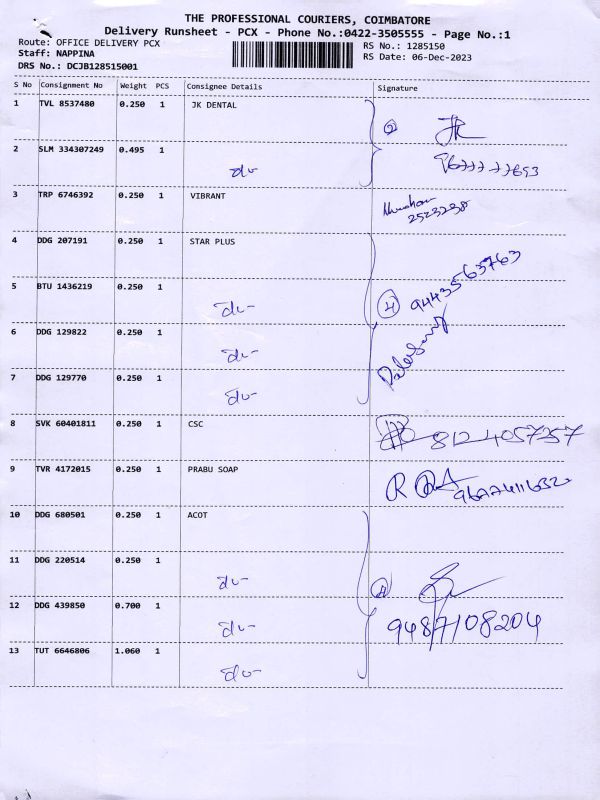 THE PROFESSIONAL COURIERS, COIMBATORE
Delivery Runsheet - PCX - Phone No.:0422-3505555 - Page No.:1
Route: OFFICE DELIVERY PCX
Staff: NAPPINA
DRS No.: DCJB128515001
RS No.: 1285150
RS Date: 06-Dec-2023
S No Consignment No Weight PCS Consignee Details Signature
1 TVL 8537480 0.250 1 JK DENTAL
2 SLM 334307249 0.495 1
3 TRP 6746392 0.250 1 VIBRANT
2523238
4 DDG 207191 0.250 1 STAR PLUS
5 BTU 1436219 0.250 1
4 9443563763
6 DDG 129822 0.250 1
7 DDG 129770 0.250 1
8 SVK 60401811 0.250 1 CSC 8124057257
9 TVR 4172015 0.250 1 PRABU SOAP
10 DDG 680501 0.250 1 ACOT
11 DDG 220514 0.250 1
4
12 DDG 439850 0.700 1 9487108204
13 TUT 6646806 1.060 1